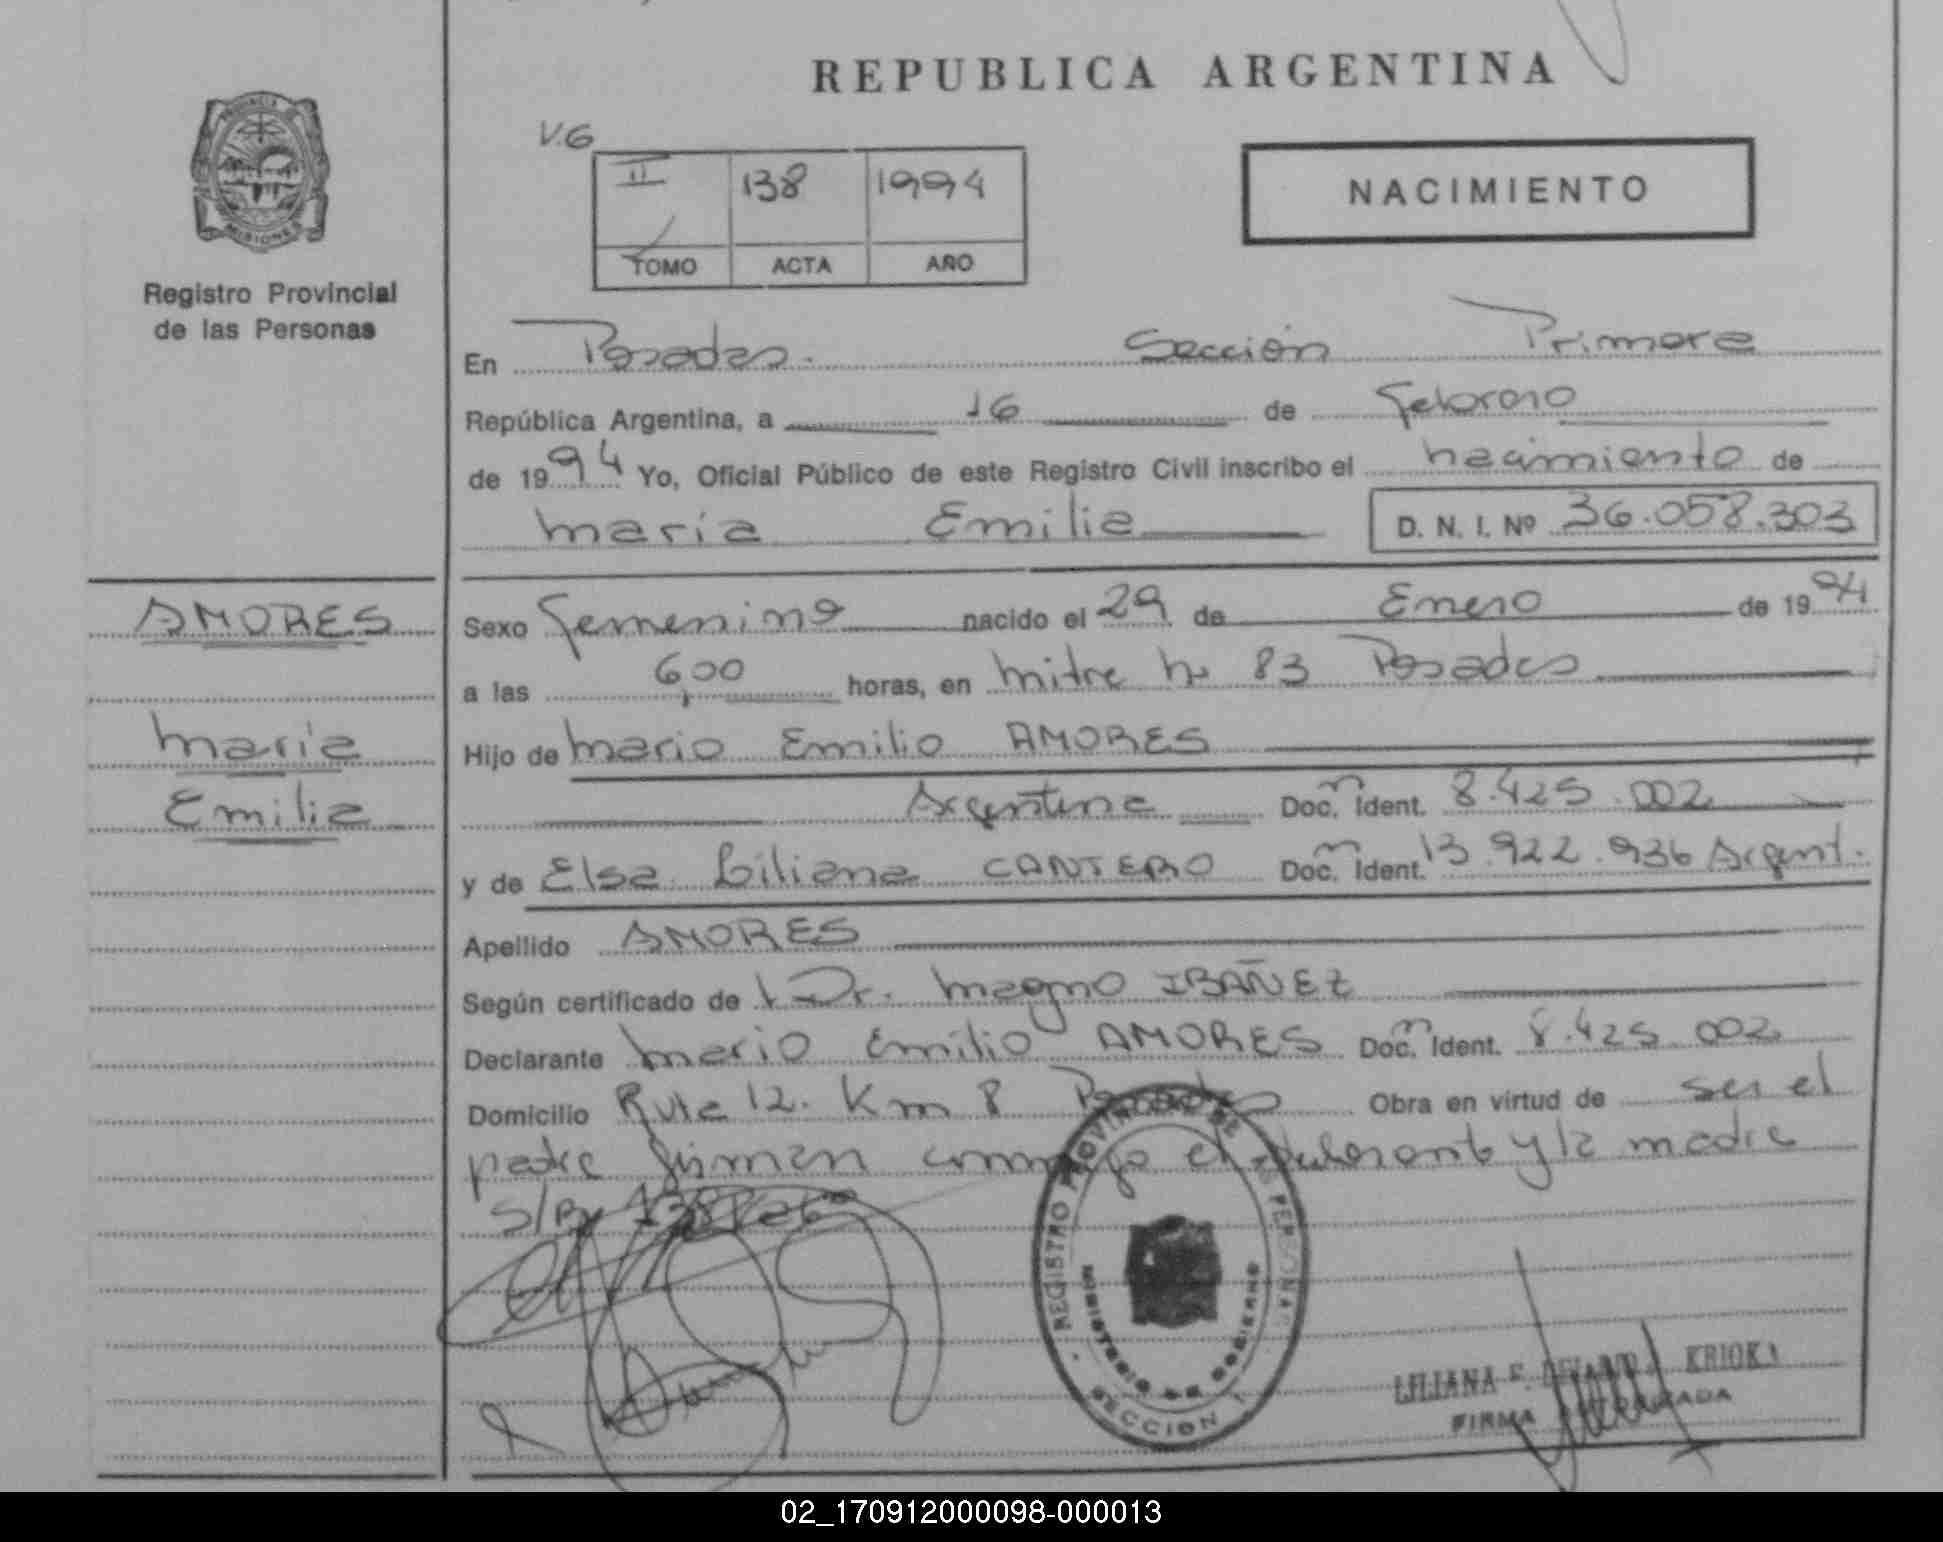 REPUBLICA ARGENTINA
PROVINCIA
MISIONES
Registro Provincial
de las Personas
V.G
II 138 1994
TOMO ACTA AÑO
NACIMIENTO
En Posadas. Sección Primera
República Argentina, a 16 de Febrero
de 1994 Yo, Oficial Público de este Registro Civil inscribo el nacimiento de
María Emilia D. N. I. Nº 36.058.303
AMORES
María
Emilia
Sexo Femenino nacido el 29 de Enero de 1994
a las 6,00 horas, en Mitre Nº 83 Posadas
Hijo de Mario Emilio AMORES
Argentina Doc. Ident. 8.425.002
y de Elsa Liliana CANTERO Doc. Ident. 13.922.936 Argent.
Apellido AMORES
Según certificado de Dr. Magno IBAÑEZ
Declarante Mario Emilio AMORES Doc. Ident. 8.425.002
Domicilio Ruta 12. Km 8 Posadas Obra en virtud de ser el
padre firman conmigo el declarante y la madre
REGISTRO PROVINCIAL DE LAS PERSONAS
MINISTERIO DE GOBIERNO
SECCION 1
LILIANA KRIOKA
FIRMA AUTORIZADA
02_170912000098-000013